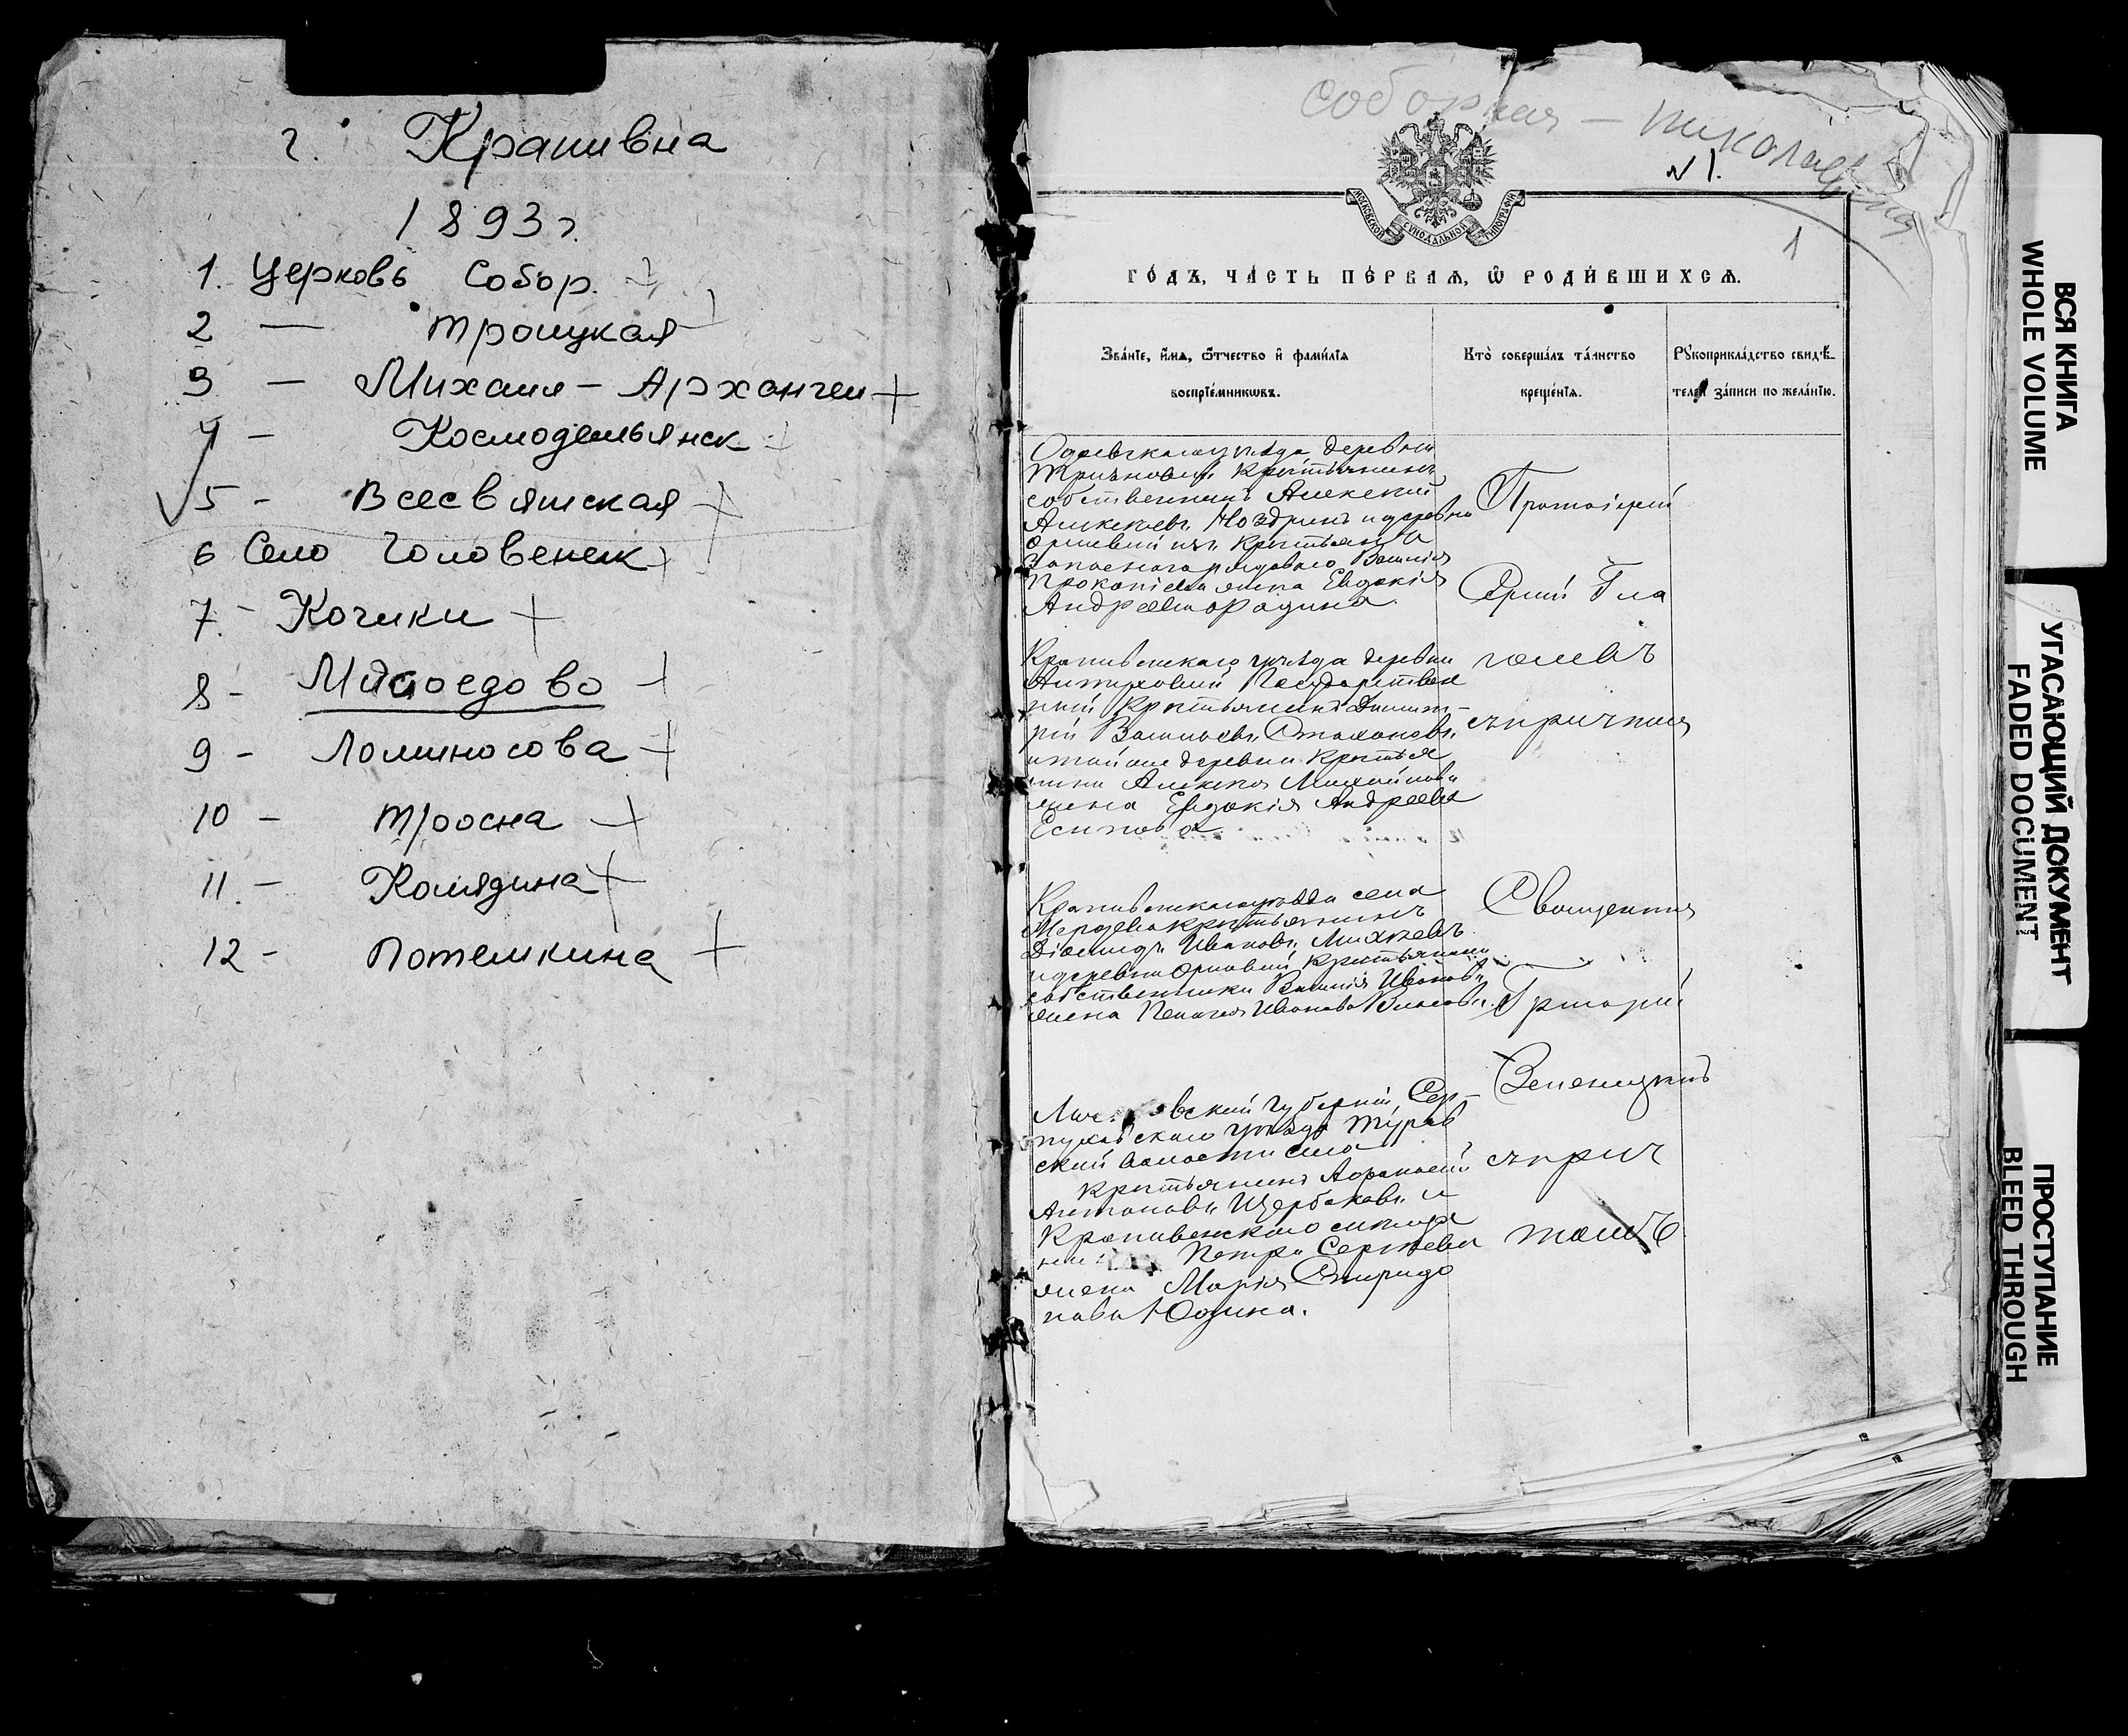 г. Крапивна
1893 г.
1. Церковь Собор. +
2 — Троицкая +
3 — Михаил – Архангел +
4 – Космодемьянск +
√ 5 - Всесвятская +
6 Село Головеньк +
7. - Кочики +
8 - Мясоедово +
9 - Ломиносова +
10 - Тросна +
11 - Колядина +
12 - Потемкина +
соборная – николаевская
№ 1.
МОСКОВСКОЙ СУНОДАЛЬНОЙ ТИПОГРАФІИ
1
ГО́ДЪ, ЧА́СТЬ ПЕ́РВАѦ, Ѡ҆ РОДИ́ВШИХСѦ.
Зва́нїе, и҆́мѧ, ѻ҆́тчество и҆ фами́лїѧ
воспрїе́мникѡвъ.
Кто̀ соверша́лъ та́инство
креще́нїѧ.
Рꙋкоприкла́дство свидѣ́-
телей за́писи по жела́нїю.
Одоевскаго уѣзда, деревни
крестьянинъ
собственникъ Алексѣй
Алексѣевъ Ноздринъ и деревни
Орловки изъ крестьянъ
запаснаго рядоваго Василія
Прокопіева жена Евдокія
Андреева Родина.
Протоіерей
Сергій Гла
голевъ
съ причтомъ
Крапивенскаго уѣзда деревни
Государствен
ный крестьянинъ Димит-
рій Васильевъ Стахановъ
и той же деревни крестья
нина Алексѣя Михайлова
жена Евдокія Андреева
Есипова
Крапивенскаго уѣзда села
крестьянинъ
Діомидъ Ивановъ Михѣевъ
и деревни Орловки крестьянина
собственника Василія Иванова
жена Пелагея Иванова Власова.
Священникъ
Григорій
Зеленецкій
съ прич
томъ
Московской губерніи Сер-
пуховскаго уѣзда Туров
ской волости села
крестьянинъ Аѳанасій
Антоновъ Щербаковъ и
Крапивенскаго
Петра Сергѣева
жена Марія Спиридо
нова Юдина.
ВСЯ КНИГА
WHOLE VOLUME
УГАСАЮЩИЙ ДОКУМЕНТ
FADED DOCUMENT
ПРОСТУПАНИЕ
BLEED THROUGH